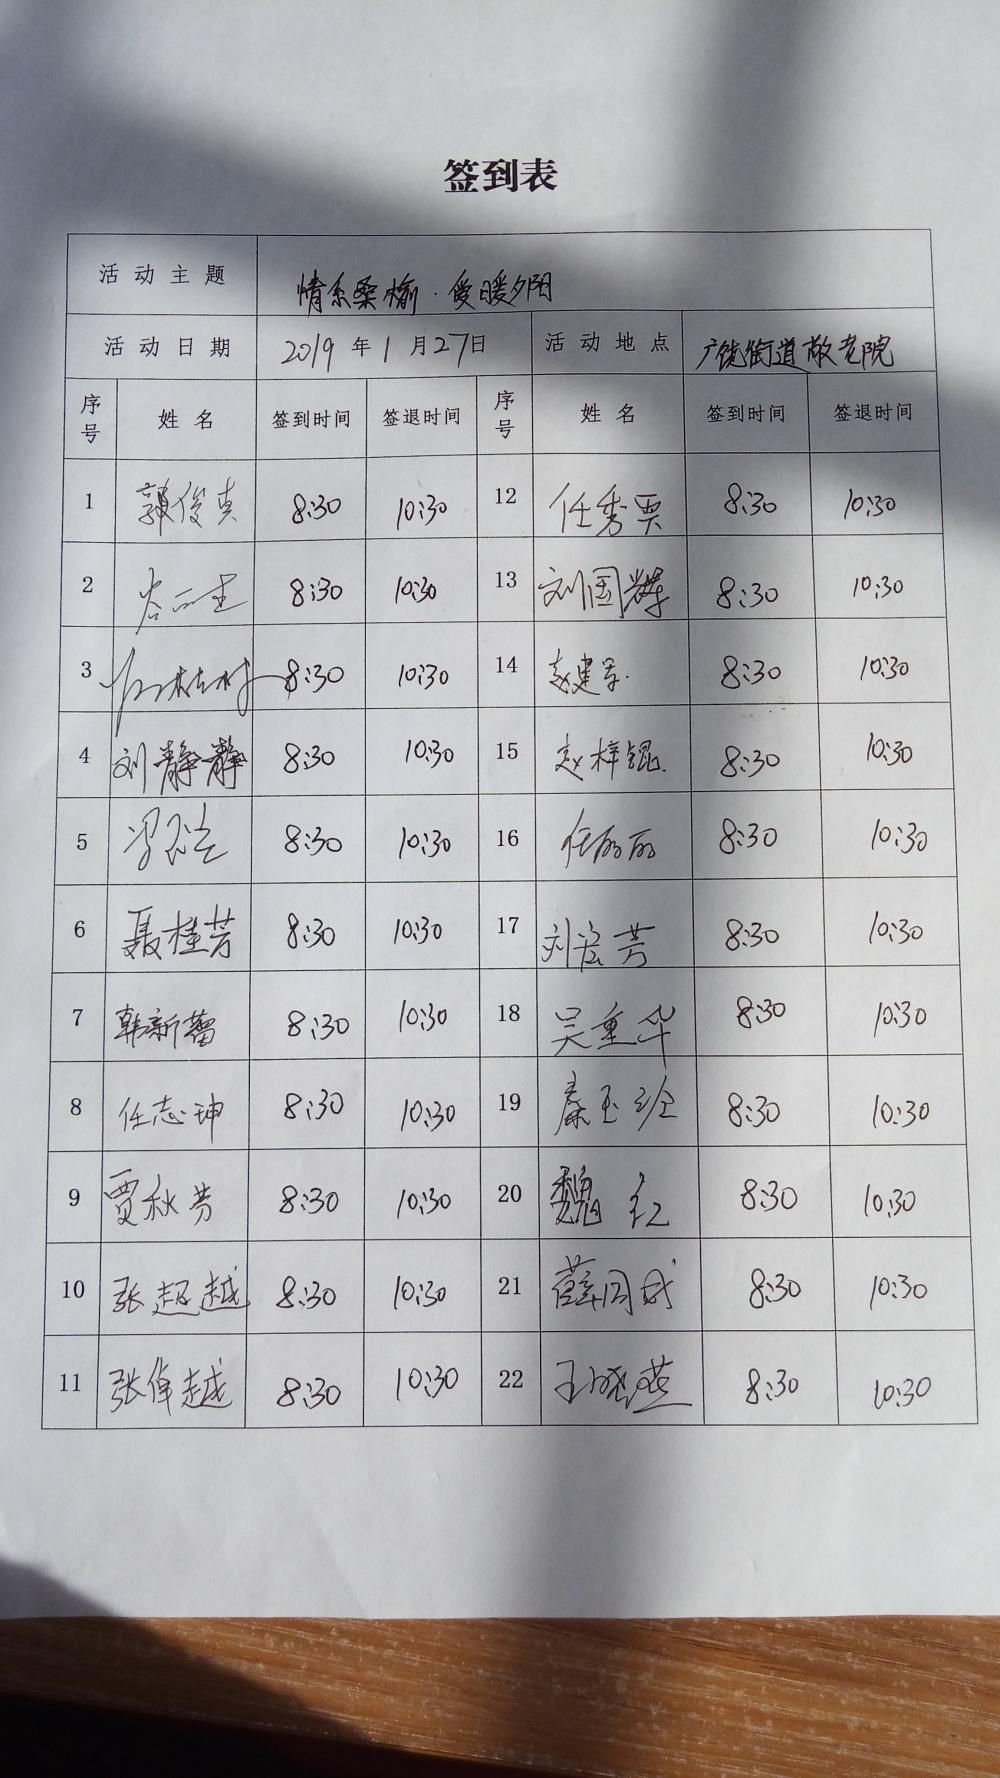 签到表
活动主题 情系桑榆·爱暖夕阳
活动日期 2019年1月27日 活动地点 广饶街道敬老院
序号 姓名 签到时间 签退时间 序号 姓名 签到时间 签退时间
1 郭俊贞 8:30 10:30 12 任秀票 8:30 10:30
2 8:30 10:30 13 刘国辉 8:30 10:30
3 8:30 10:30 14 赵建军 8:30 10:30
4 刘静静 8:30 10:30 15 赵梓锟 8:30 10:30
5 8:30 10:30 16 任丽丽 8:30 10:30
6 聂桂芳 8:30 10:30 17 刘宏芳 8:30 10:30
7 韩新蕾 8:30 10:30 18 吴重华 8:30 10:30
8 任志珅 8:30 10:30 19 秦玉 8:30 10:30
9 贾秋芳 8:30 10:30 20 魏红 8:30 10:30
10 张超越 8:30 10:30 21 薛国 8:30 10:30
11 张倬越 8:30 10:30 22 王晓燕 8:30 10:30